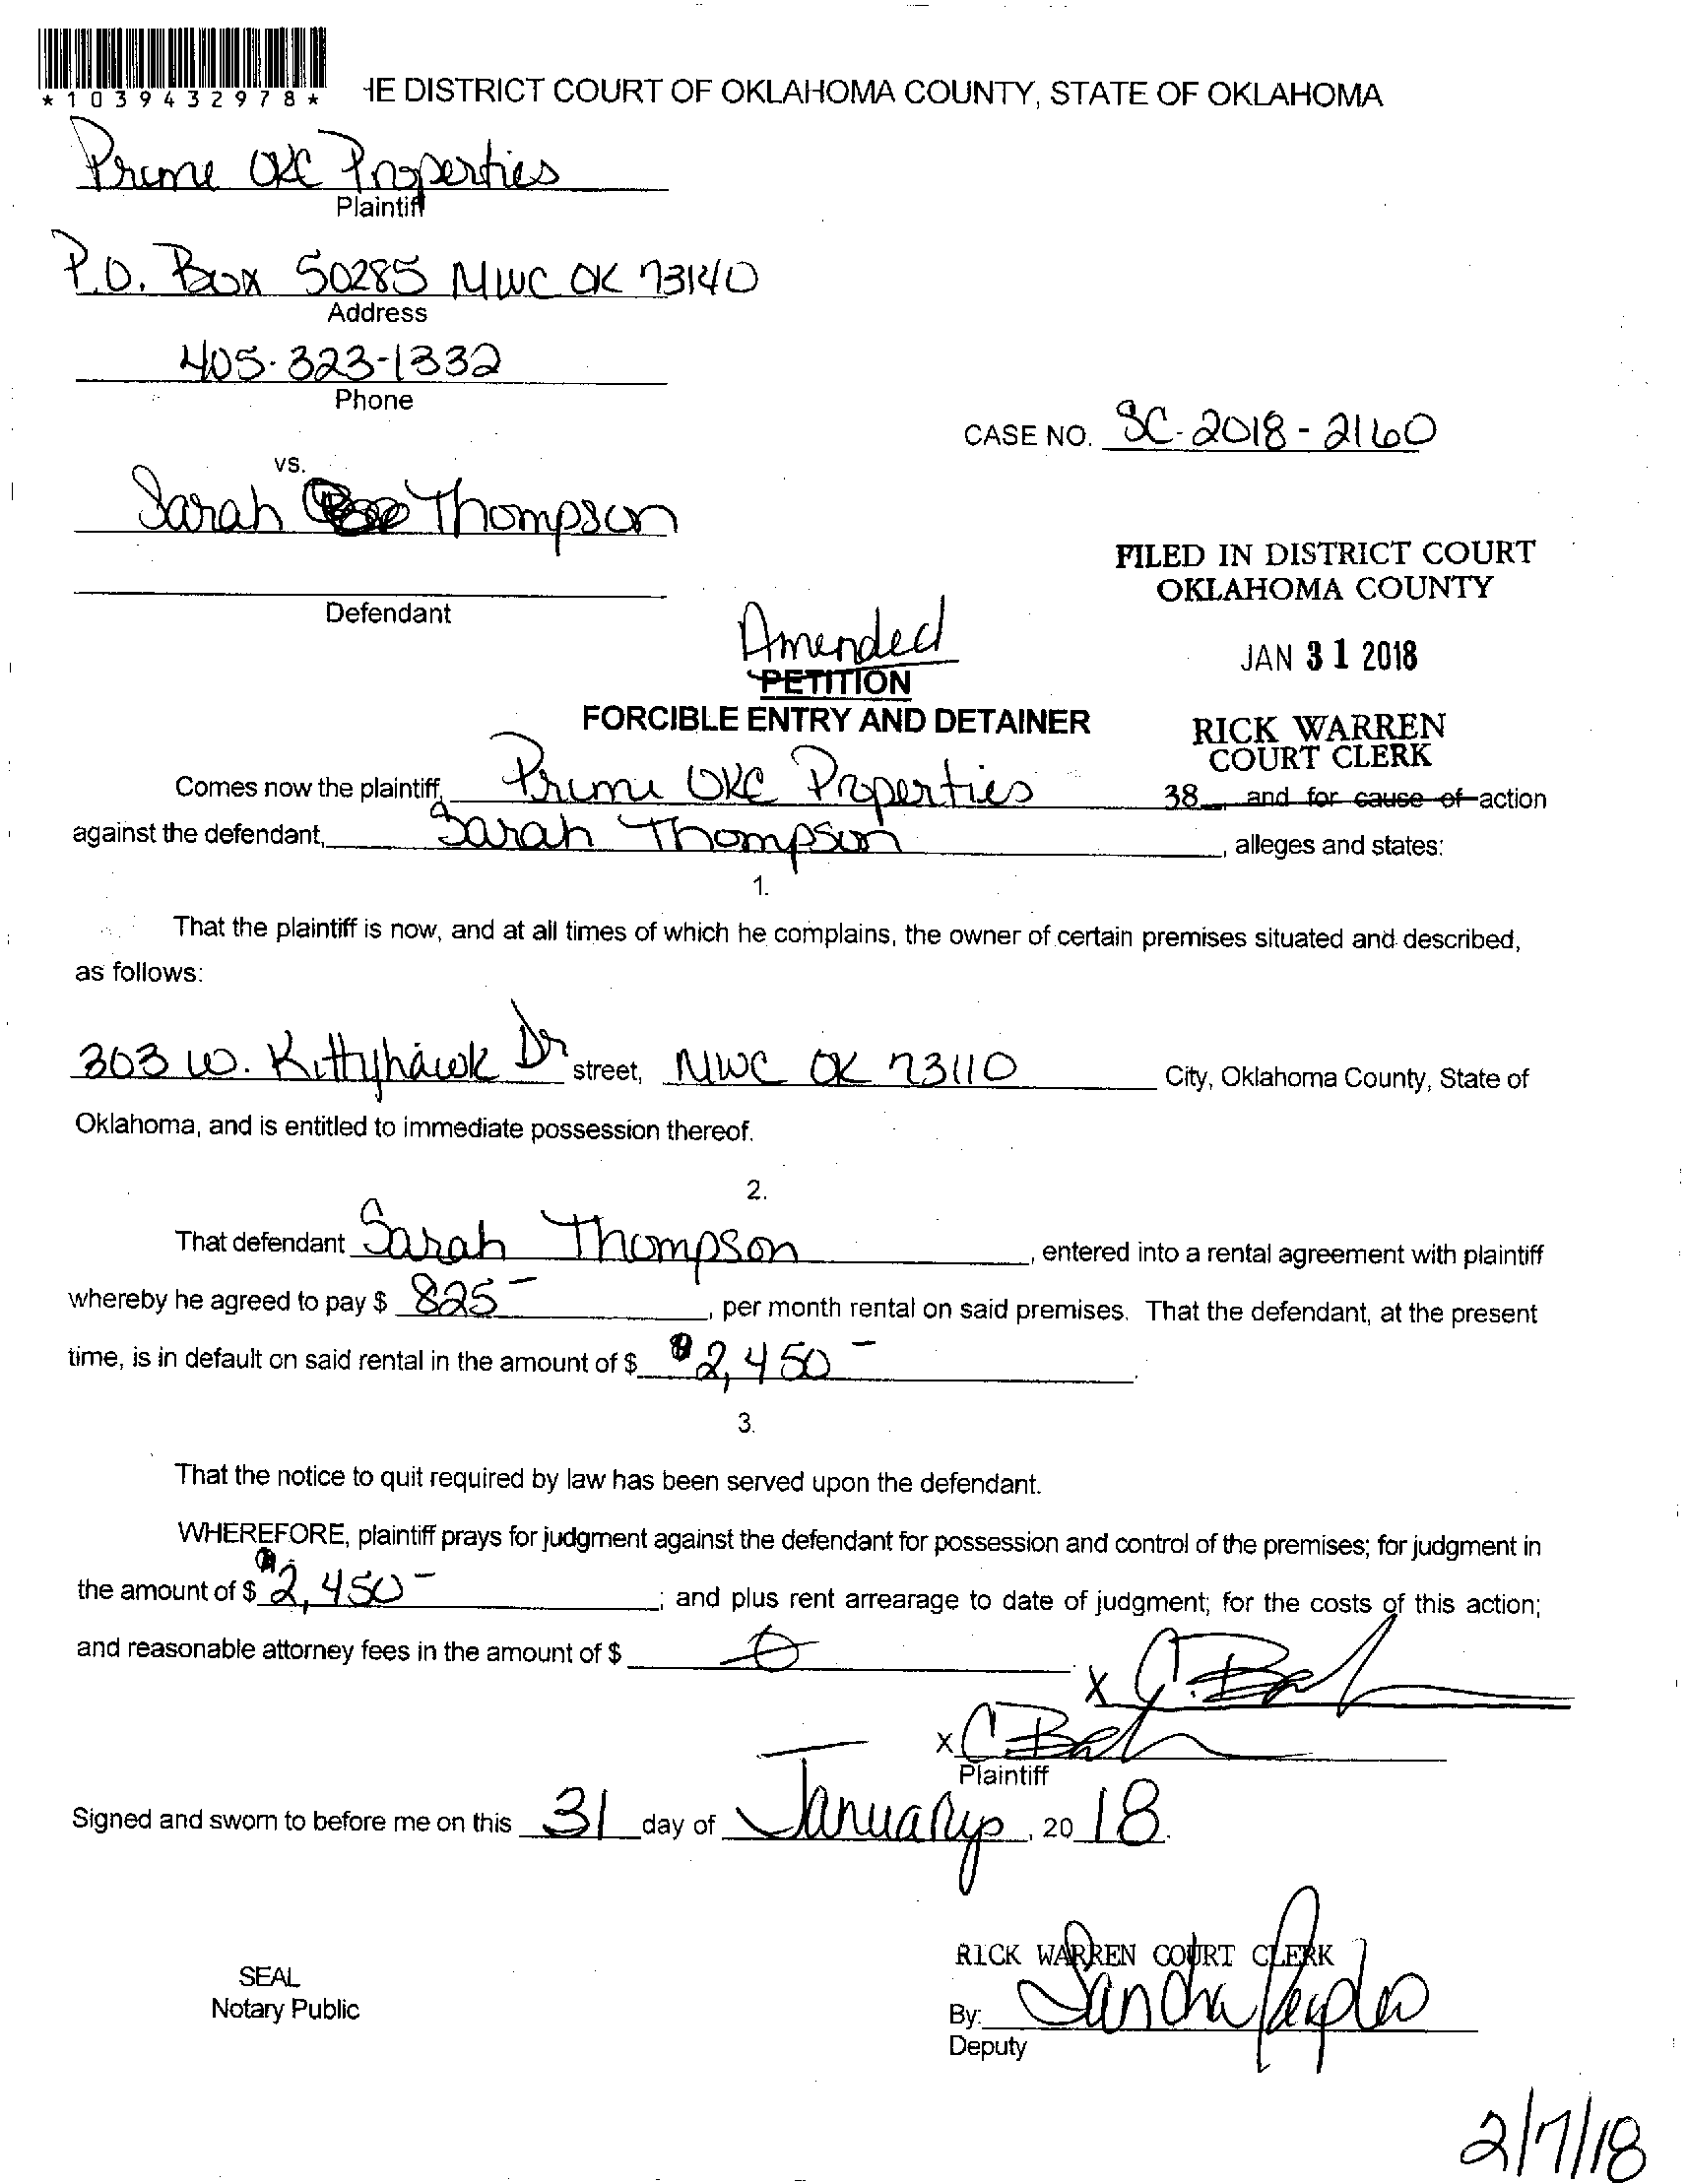 *1039432978*
HE DISTRICT COURT OF OKLAHOMA COUNTY, STATE OF OKLAHOMA
Prime OKC Properties
Plaintiff
P.O. Box 50285 MWC OK 73140
Address
405-323-1332
Phone
CASE NO. SC-2018-2160
vs.
Sarah Thompson
FILED IN DISTRICT COURT
OKLAHOMA COUNTY
Defendant
Amended
JAN 31 2018
PETITION
FORCIBLE ENTRY AND DETAINER
RICK WARREN
COURT CLERK
Comes now the plaintiff, Prime OKC Properties 38 and for cause of action
against the defendant, Sarah Thompson, alleges and states:
1.
That the plaintiff is now, and at all times of which he complains, the owner of certain premises situated and described,
as follows:
303 W. Kittyhawk Dr street, MWC OK 73110 City, Oklahoma County, State of
Oklahoma, and is entitled to immediate possession thereof.
2.
That defendant Sarah Thompson, entered into a rental agreement with plaintiff
whereby he agreed to pay $ 825-, per month rental on said premises. That the defendant, at the present
time, is in default on said rental in the amount of $ $2,450-.
3.
That the notice to quit required by law has been served upon the defendant.
WHEREFORE, plaintiff prays for judgment against the defendant for possession and control of the premises; for judgment in
the amount of $ 2,450-; and plus rent arrearage to date of judgment; for the costs of this action;
and reasonable attorney fees in the amount of $ 0
x
x
Plaintiff
Signed and sworn to before me on this 31 day of January, 20 18.
RICK WARREN COURT CLERK
SEAL
Notary Public
By: Sandra
Deputy
2/7/18